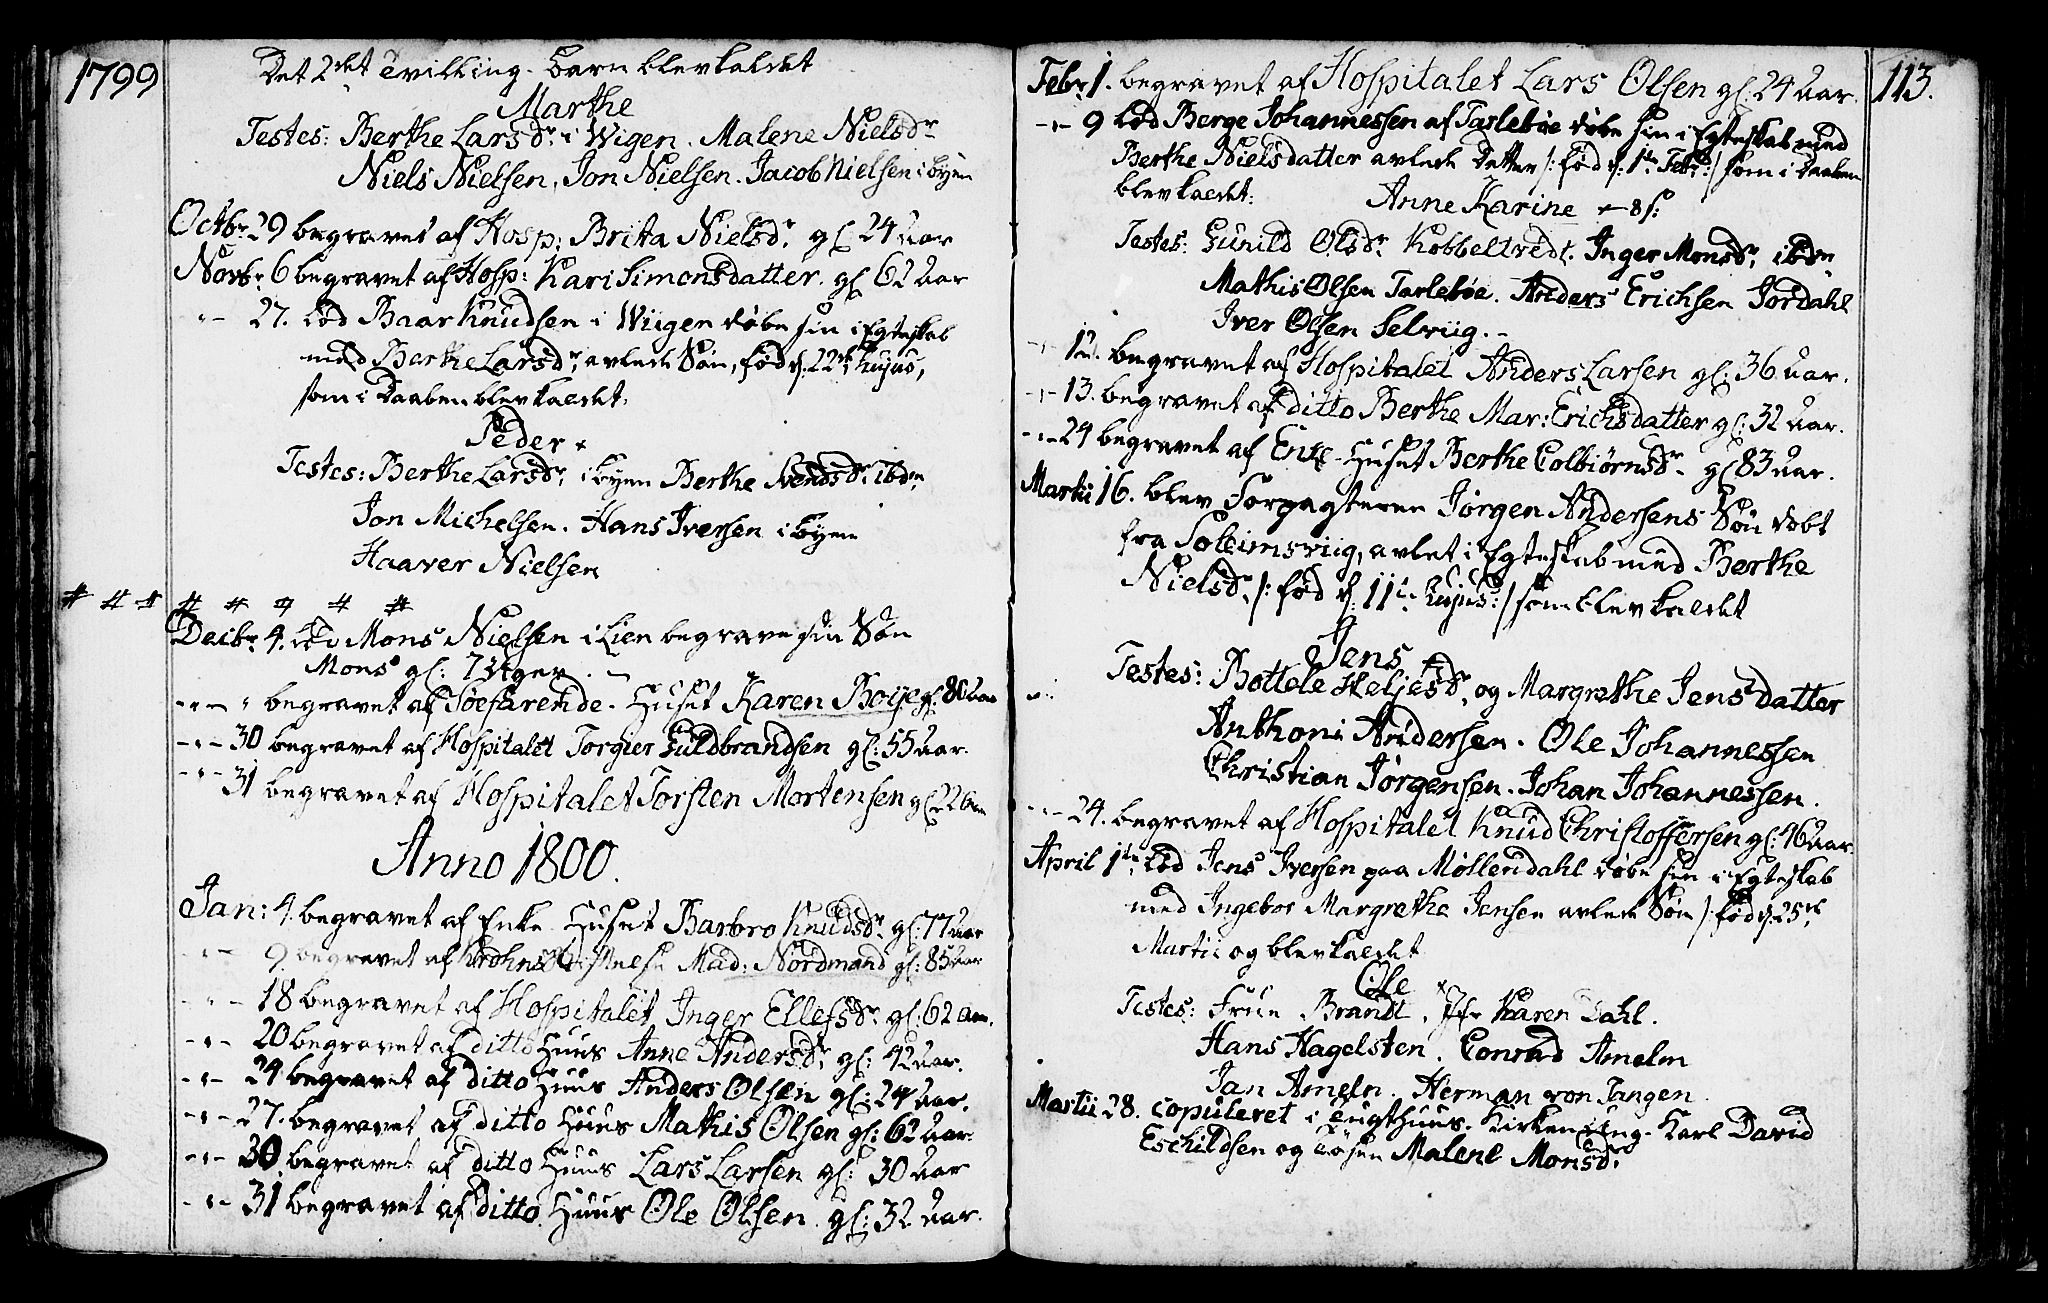 1799
Det 2det Tvilling-barn blev kaldet
Marthe
Testes: Berthe Larsdr. i Wigen. Malene Nielsdr.
Niels Nielsen, Jon Nielsen. Jacob Nielsen i byen
Octbr. 29 begravet af Hosp: Brita Nielsdr. gl: 24 Aar
Novbr. 6 begravet af Hosp: Kari Simonsdatter. gl 62 Aar
-"- 27. Lod Baar Knudsen i Wiigen døbe sin i Egteskab
med Berthe Larsdr. avlede Søn, fød d: 22de hujus,
som i Daaben blev kaldet.
Peder
Testes: Berthe Larsdr. i byen Berthe Svendsdr. ibdm.
Jon Michelsen. Hans Iversen i byen
Haaver Nielsen
# # # # # # # #
Decbr. 4. Lod Mons Nielsen i Lien begrave sin Søn
Mons gl: 7 Uger.
-"- " begravet af Søefarende-Huset Karen Boije gl: 80 Aar
-"- 30 begravet af Hospitalet Torgier Guldbrandsen gl: 55 Aar.
-"- 31 begravet af Hospitalet Torsten Mortensen gl 22 Aar
Anno 1800.
Jan: 4. begravet af Enke-Huset Barbro Knudsdr. gl: 77 Aar
-"- 9. begravet af Krohns Mad: Nordmand gl: 85 Aar
-"- 18 begravet af Hospitalet Inger Ellefsdr. gl: 62 Aar.
-"- 20 begravet af ditto Huus Anne Andersdr. gl: 42 Aar.
-"- 24 begravet af ditto Huus Anders Olsen gl: 24 Aar.
-"- 27. begravet af ditto Huus Mathis Olsen gl: 62 Aar.
-"- 30. begravet af ditto Huus Lars Larsen gl: 30 Aar
-"- 31 begravet af ditto Huus Ole Olsen. gl: 32 Aar.
113.
Febr 1. begravet af Hospitalet Lars Olsen gl: 24 Aar.
-"- 9 Lod Berge Johannessen af Tarlebøe døbe sin i Egteskab med
Berthe Nielsdatter avlede Datter /: fød d: 1ste Febr: :/ som i Daaben
blev kaldet: Anne Karine
Testes: Gunild Olsdr. Kobbeltvedt. Inger Monsdr. ibdm
Mathis Olsen Tarlebøe. Anders Erichsen Jordahl
Iver Olsen Selviig.
-"- 12. begravet af Hospitalet Anders Larsen gl: 36 Aar.
-"- 13. begravet af ditto Berthe Mar: Erichsdatter gl: 32 Aar.
-"- 24 begravet af Enke-Huset Berthe Colbiørnsdr. gl 83 Aar.
Martii 16. blev Forpagteren Jørgen Andersens Søn døbt
fra Soleimsviig, avlet i Egteskab med Berthe
Nielsdr. /: fød d: 11te hujus :/ som blev kaldet
Jens
Testes: Bottele Heljesdr. og Margrethe Jensdatter
Anthoni Andersen. Ole Johannessen
Christian Jørgensen. Johan Johannessen.
-"- 24. begravet af Hospitalet Knud Christoffersen gl: 46 Aar.
April 1ste. Lod Jens Iversen paa Møllendahl døbe sin i Egteskab
med Ingebor Margrethe Jensen avlede Søn /: fød d: 25de
Martii og blev kaldet
Ole
Testes: Frue Brandt. Jfr Karen Dahl.
Hans Hagelsten. Conrad Ameln
Jan Ameln. Herman von Tangen.
Martii 28. copuleret i Tugthuus-Kirken Ung-Karl David
Eschildsen og Tøsen Malene Monsdr.